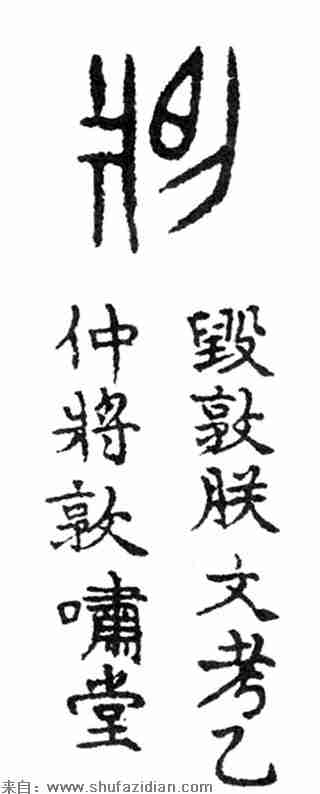 毀敦朕文考乙
仲將敦嘯堂
来自：www.shufazidian.com